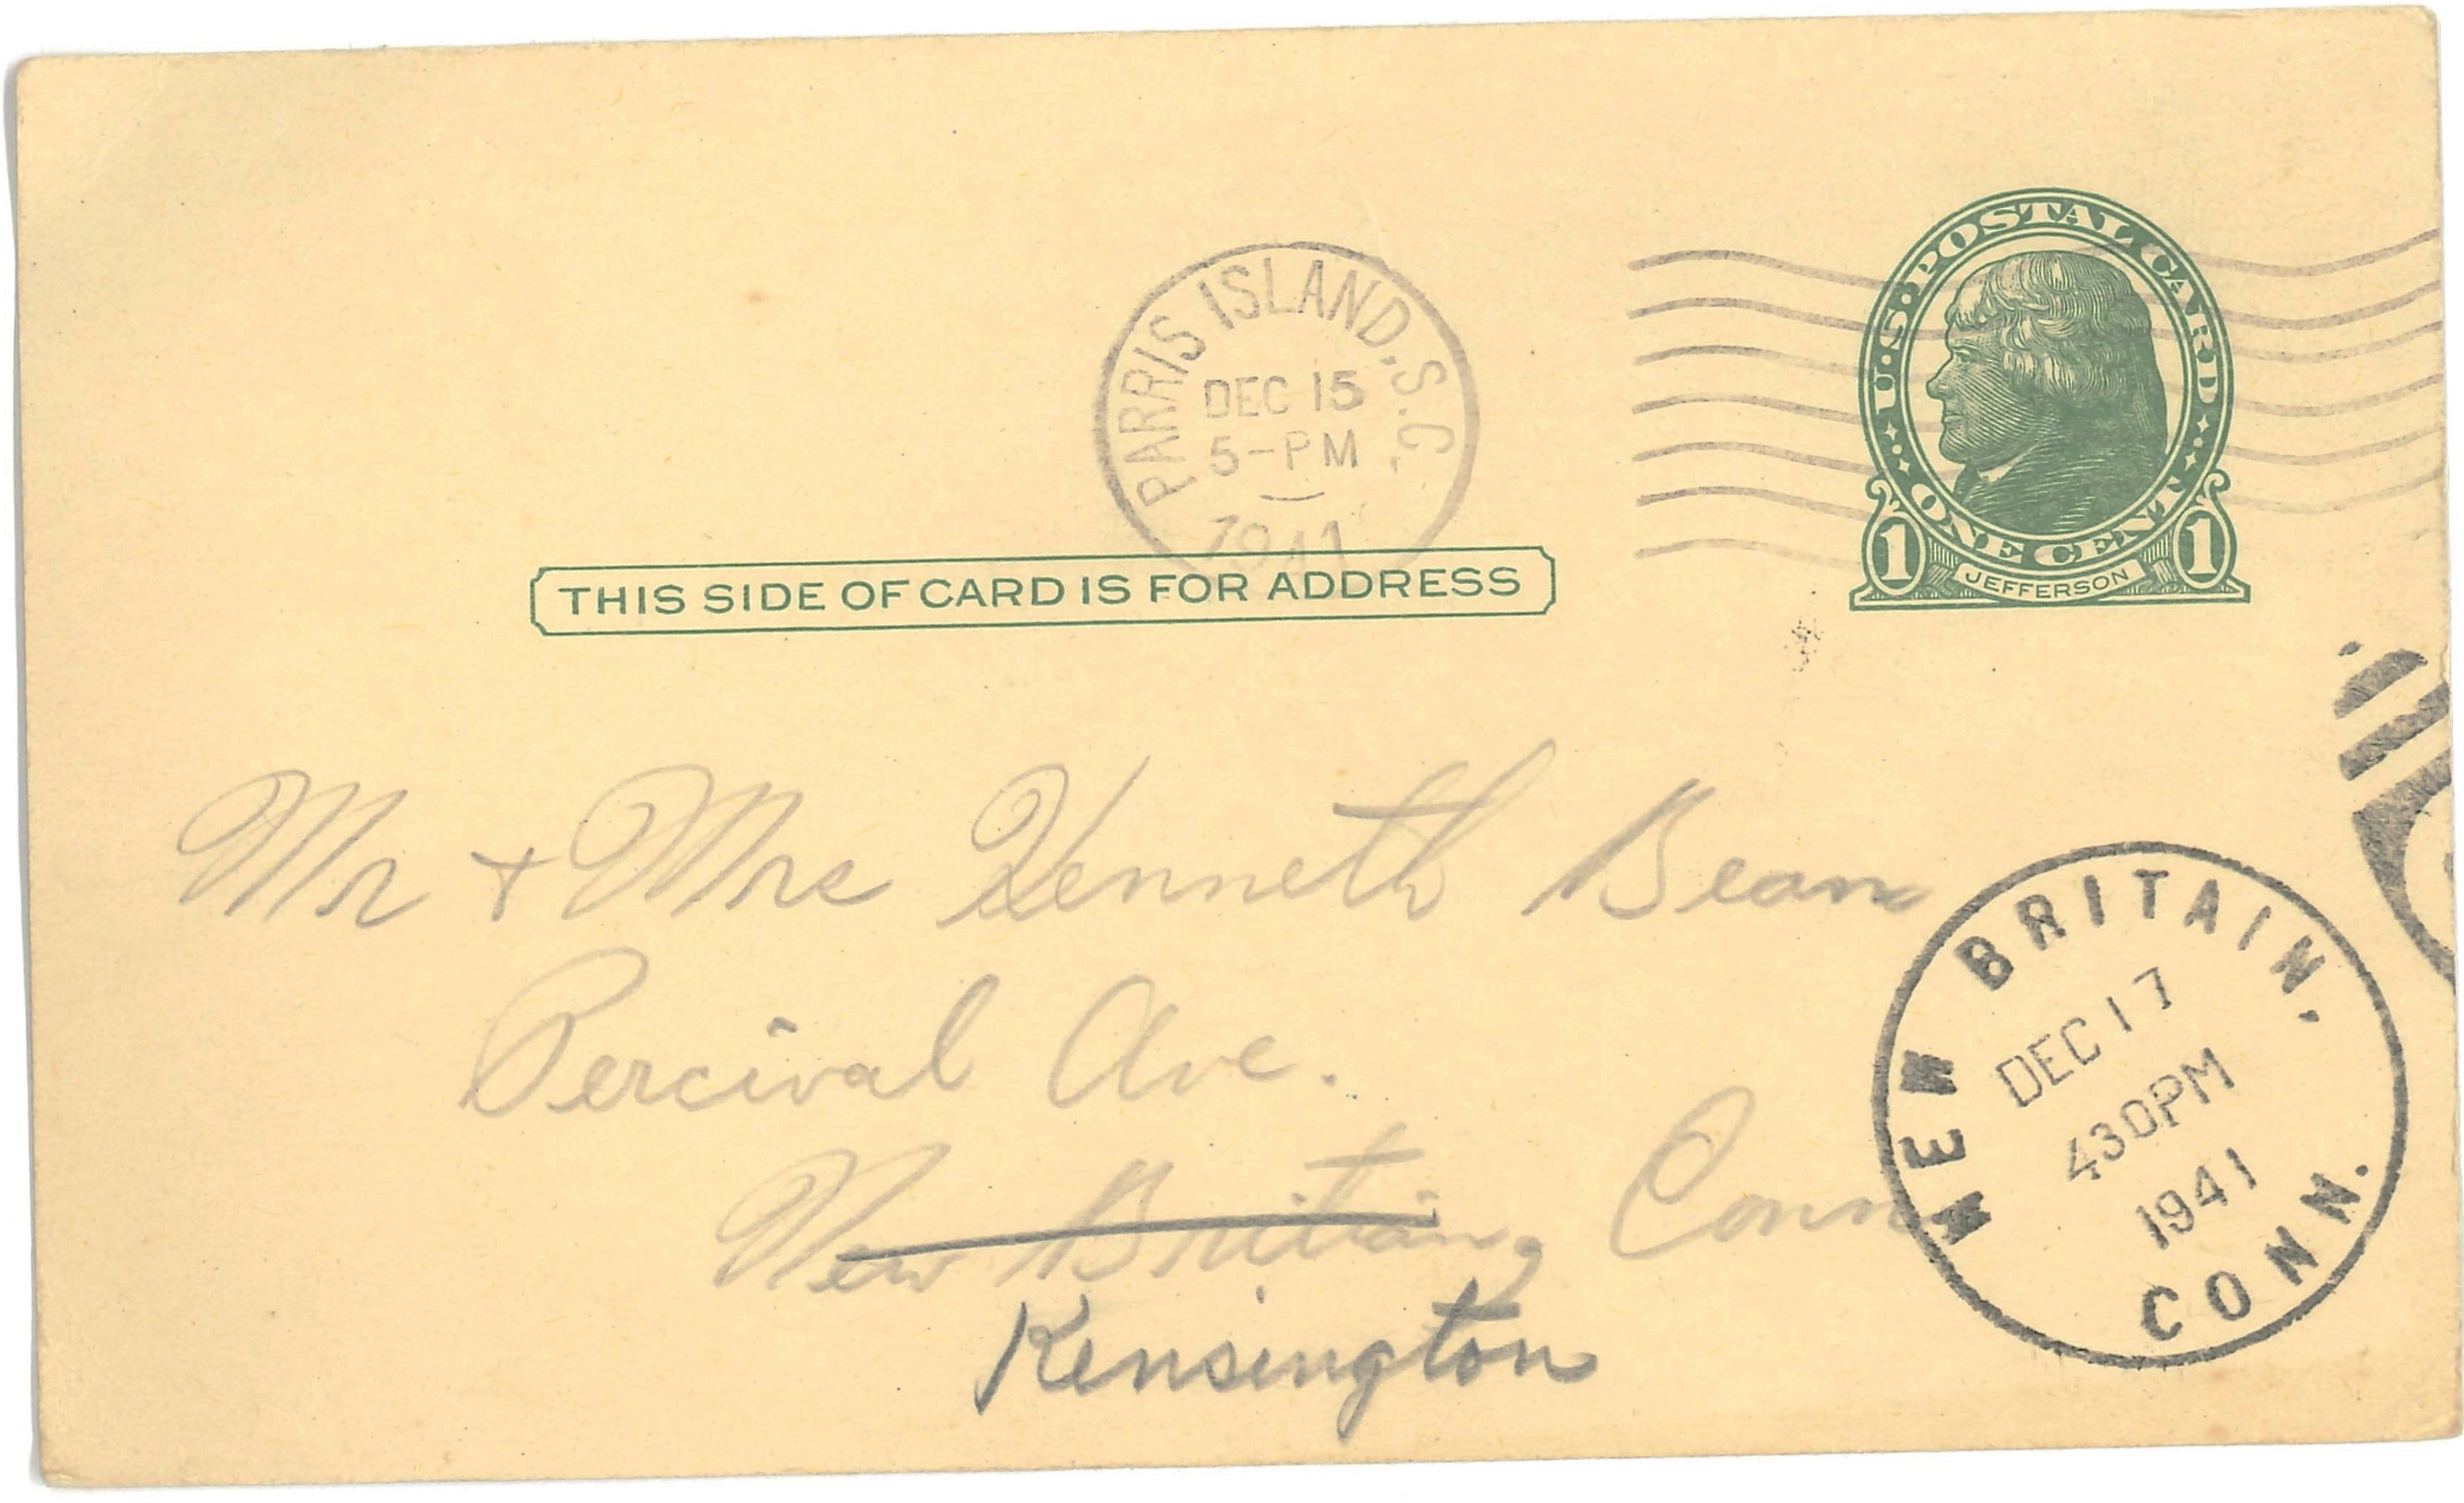 PARRIS ISLAND, S.C.
DEC 15
5-PM
1941
U.S. POSTAL CARD
ONE CENT
1 JEFFERSON 1
THIS SIDE OF CARD IS FOR ADDRESS
Mr + Mrs Kenneth Bean
Percival Ave.
New Britain, Conn
Kensington
NEW BRITAIN,
DEC 17
430PM
1941
CONN.